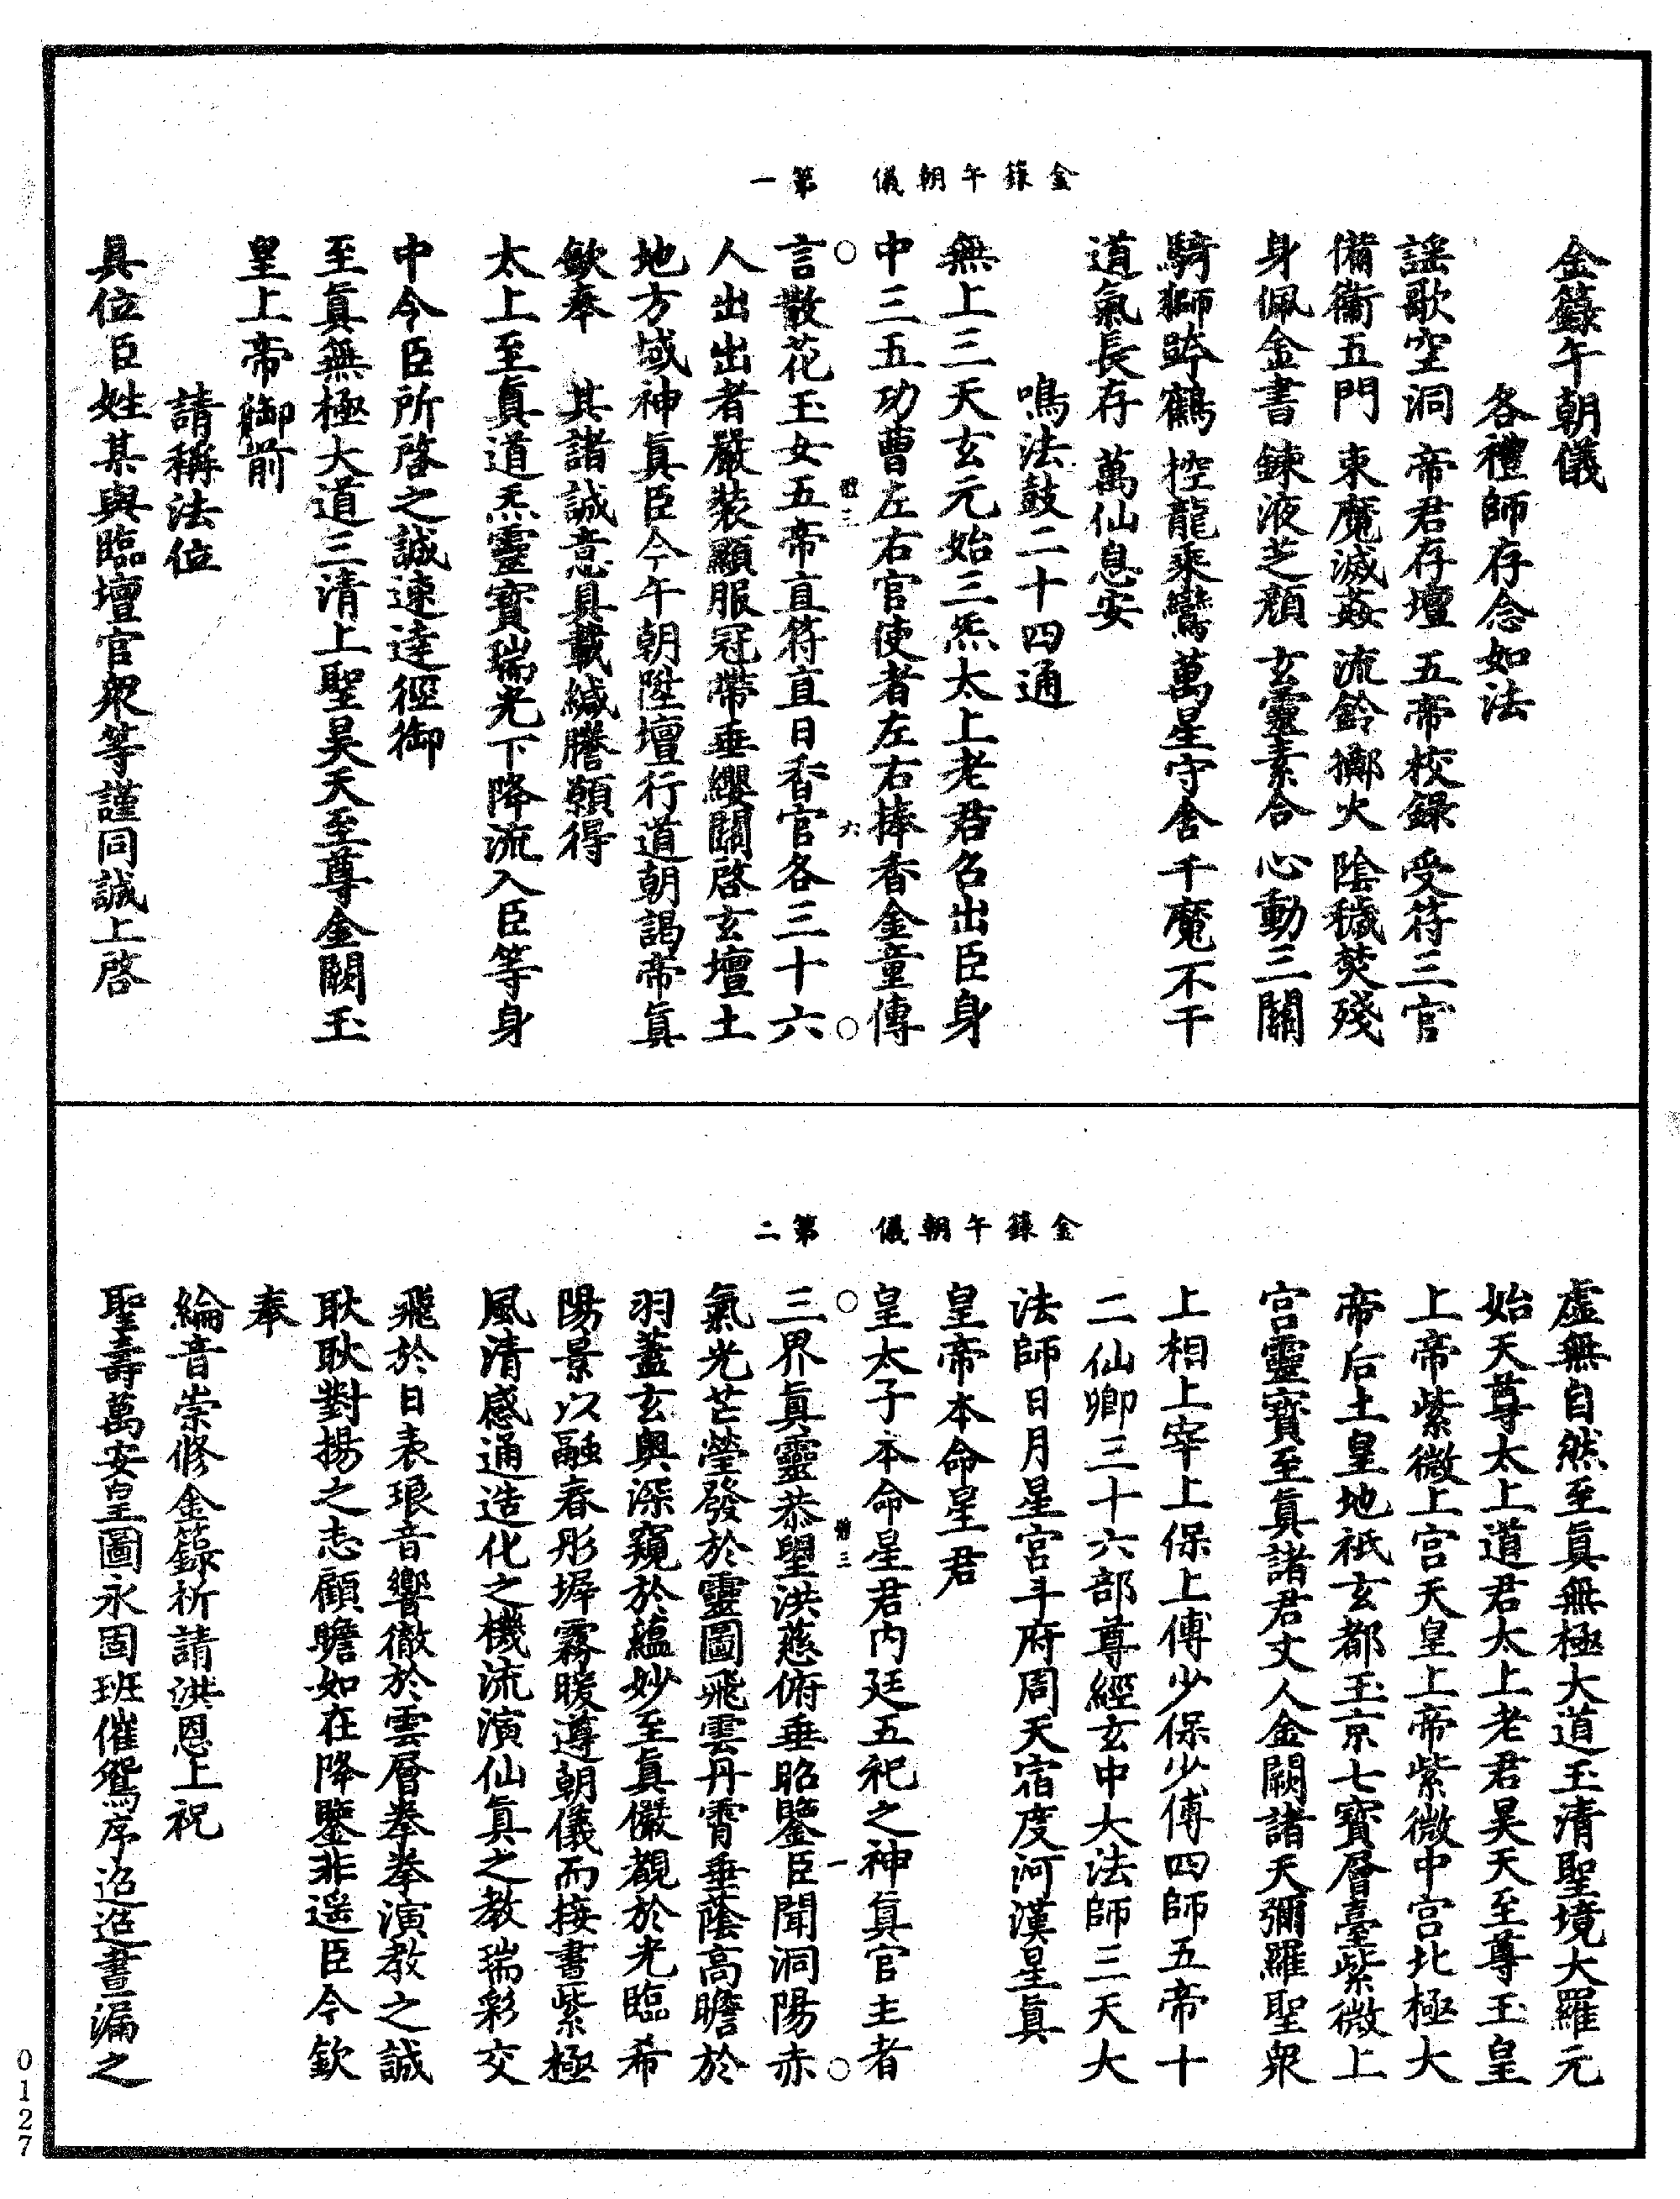 金籙午朝儀　第一
金籙午朝儀
各禮師存念如法
謠歌空洞　帝君存壇　五帝校錄　受符三官
備衛五門　束魔滅姦　流鈴擲火　陰穢焚殘
身佩金書　鍊液芝顏　玄靈素合　心動三關
騎獅跨鶴　控龍乘鸞　萬星守舍　千魔不干
道氣長存　萬仙息安
鳴法鼓二十四通
無上三天玄元始三炁太上老君召出臣身
中三五功曹左右官使者左右捧香金童傳
言散花玉女五帝直符直日香官各三十六
人出出者嚴裝顯服冠帶垂纓關啓玄壇土
地方域神眞臣今午朝陞壇行道朝謁帝眞
欽奉　其諸誠意具載緘謄願得
太上至眞道炁靈寶瑞光下降流入臣等身
中令臣所啓之誠速達徑御
至眞無極大道三清上聖昊天至尊金闕玉
皇上帝御前
請稱法位
具位臣姓某與臨壇官衆等謹同誠上啓
金籙午朝儀　第二
虛無自然至眞無極大道玉清聖境大羅元
始天尊太上道君太上老君昊天至尊玉皇
上帝紫微上宮天皇上帝紫微中宮北極大
帝后土皇地祇玄都玉京七寶層臺紫微上
宮靈寶至眞諸君丈人金闕諸天彌羅聖衆
上相上宰上保上傅少保少傅四師五帝十
二仙卿三十六部尊經玄中大法師三天大
法師日月星宮斗府周天宿度河漢星眞
皇帝本命星君
皇太子本命星君內廷五祀之神眞官主者
三界眞靈恭望洪慈俯垂昭鑒臣聞洞陽赤
氣光芒瑩發於靈圖飛雲丹霄垂蔭高瞻於
羽蓋玄奧深窺於蘊妙至眞儼觀於光臨希
陽景以融春彤墀霧暖遵朝儀而接晝紫極
風清感通造化之機流演仙眞之教瑞彩交
飛於日表琅音響徹於雲層拳拳演教之誠
耿耿對揚之志顧瞻如在降鑒非遥臣今欽
奉
綸音崇修金籙祈請洪恩上祝
聖壽萬安皇圖永固班催鴛序迢迢晝漏之
0127